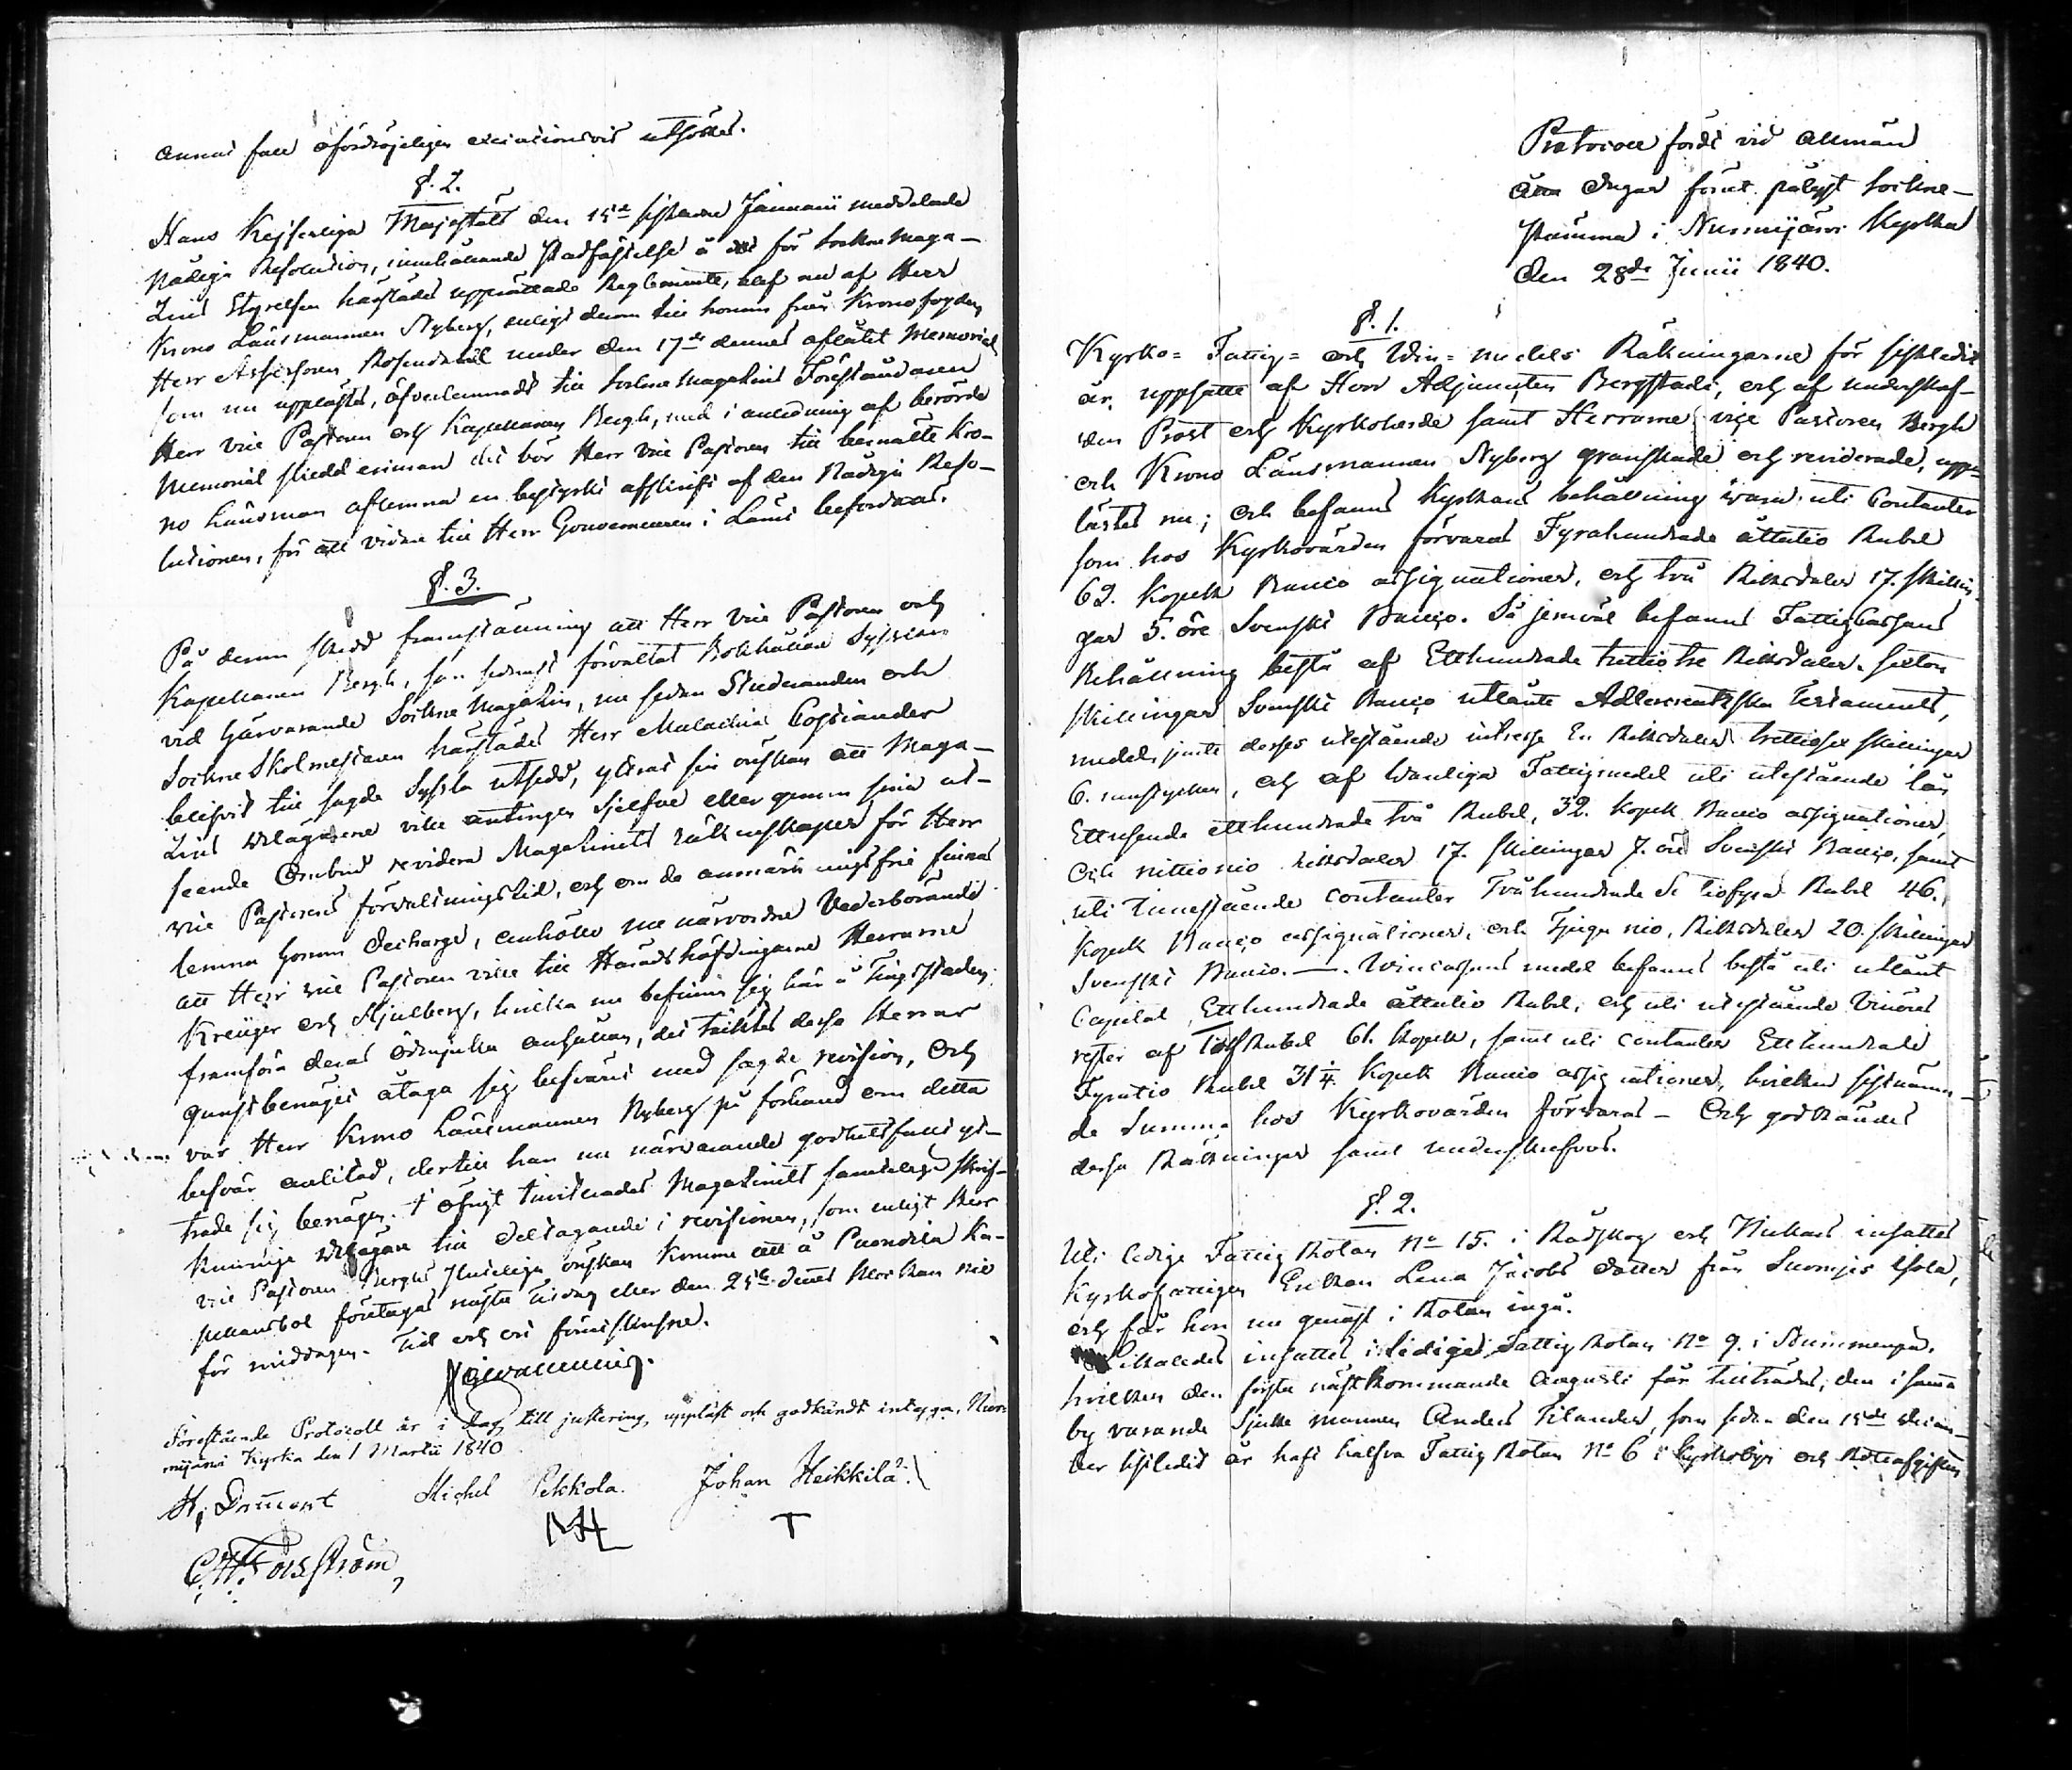 annat fall ofördröjeligen executionsvis utsökes.
§. 2.
Hans Kejserliga Majestäts den 15de sistledne Januarii meddelade
Nådiga Resolution, innehållande stadfästelse å det för Sockne Maga-
zins Styrelsen härstädes upprättade Reglemente, blef nu af Herr
Krono Länsmannen Nyberg, enligt denne till honom från Kronofogden
Herr Assessoren Rosendahl under den 17de dennes aflåtit Memorial
som nu upplästes, öfverlemnadt till Sockne Magazins Föreståndaren
Herr vice Pastoren och Kapellanen Bergh, med i anledning af berörde
Memorial skedd eriman det bör Herr vice Pastoren till bemälte Kro-
no Länsman aflemna en bestyrkt afskrift af den Nådiga Reso-
lutionen, för att vidare till Herr Gouverneuren i Länet befordras.
§. 3.
På denne skedd framställning att Herr vice Pastoren och
Kapellanen Bergh, som sednast förvaltat Bokhållare Sysslan
vid härvarande Sockne Magazin, nu sedan Studeranden och
Sockne Skolmästaren härstädes Herr Malachias Costiander
blifvit till sagde Syssla utsedd, yttrat sin önskan att Maga-
zins delägarene ville antingen sjelfve eller genom sina ut-
seende Ombud revidera Magazinets räkenskaper för Herr
vice Pastorens förvaltningstid, och om de anmärkningsfrie finnas
lemna honom decharge, anhöllo nu närvordne Vederbörande
att Herr vice Pastoren ville till Häradshöfdingarne Herrarne
Kreüger och Stjulberg, hvilka nu befinna sig här å Tingsstaden,
framföra deras ödmjuka anhållan, det täcktes desse Herrar
gunstbenäget åtaga sig besväret med sagde revision, och
var Herr Krono Länsmannen Nyberg på förhand om detta
besvär anlitad, dertill han nu närvarande godhetsfullt ytt-
trade sig benägen. I öfrigt tillsades Magazinets samtelige skrif-
kunnige delägare till deltagande i revisionen, som enligt Herr
vice Pastoren Berghs skedde önskan komme att å Puondila Ka-
pellansbol företagas nästa Tisdag eller den 25te dennes klockan nio
för middagen. Tid och ort förutskrifne.
Förestående Protocoll är i dag till justering uppläst och godkändt intyga, Nur-
mijärvi Kyrka den 1 Martii 1840
Michel Pekkola. Johan Heikkilä.
C. W. Forsström,
Protocoll fördt vid allmän
åtta dagar förut pålyst Sockne-
stämma i Nurmijärvi Kyrka
den 28de Junii 1840.
§. 1.
Kyrko= Fattig= och Vin= medels Räkningarne för sistledit
år, uppsatte af Herr Adjuncten Bergstadi, och af underskref-
ven Prost och Kyrkoherde samt Herrarne vice Pastoren Bergh
och Krono Länsmannen Nyberg granskade och reviderade, upp-
lästes nu; och befanns Kyrkans behållning vara uti Contanter
som hos Kyrkovärden förvaras Fyrahundrade åttatio Rubel
62. Kopek Banco assignationer, och två Riksdaler 17. skillin-
gar 5. öre Svenskt Banco. Så jemväl befanns Fattig Cassans
Behållning bestå af Etthundrade trettiotre Riksdaler sexton
skillingar Svenskt Banco utlånte Adlercreutzska Testaments,
medel, jemte desses utestående intresse En Riksdaler trettiosex skillingar
6. runstycken, och af vanliga Fattigmedel uti utestående lån
Ettusende etthundrade två Rubel, 32. kopek Banco assignationer,
och nittionio riksdaler 17. skillingar 7. öre Svenskt Banco, samt
uti innestående contanter Tvåhundrade Sextiofyra Rubel 46.
Kopek Banco assignationer, och Tjugu nio, Riksdaler 20. skillingar
Svenskt Banco. —. Vincassans medel befanns bestå uti utlånt
Capital Etthundrade åttatio Rubel, och uti utestående Vinöres
rester af Tolf Rubel 61. Kopek, samt uti contanter Etthundrade
Fyratio Rubel 31 1/4. Kopek Banco assignationer, hvilken sistnämn-
de Summa hos Kyrkovärden förvaras – Och godkändes
dessa Räkningar samt underskrefvos.
§. 2.
Uti ledige Fattig Rotan No 15. i Rådskog och Nukari insattes
Kyrkofattigen Enkan Lena Jacobs dotter från Suomjes Isola,
och får hon nu genast i Rotan ingå.
Likaledes insattes i ledige Fattig Rotan No 9. i Nummenpä,
hvilken den första nästkommande Augusti får tillträdas, den i samma
by varande sjuke mannen Anders Tilander, som sedan den 15de decem-
ber sistledit år haft halfva Fattig Rotan No 6 i Kyrkobyn och Roteafgiften